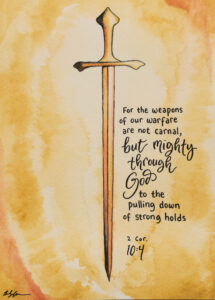 For the weapons
of our warfare
are not carnal,
but mighty
through
God
to the
pulling down
of strong holds
2 Cor.
10:4